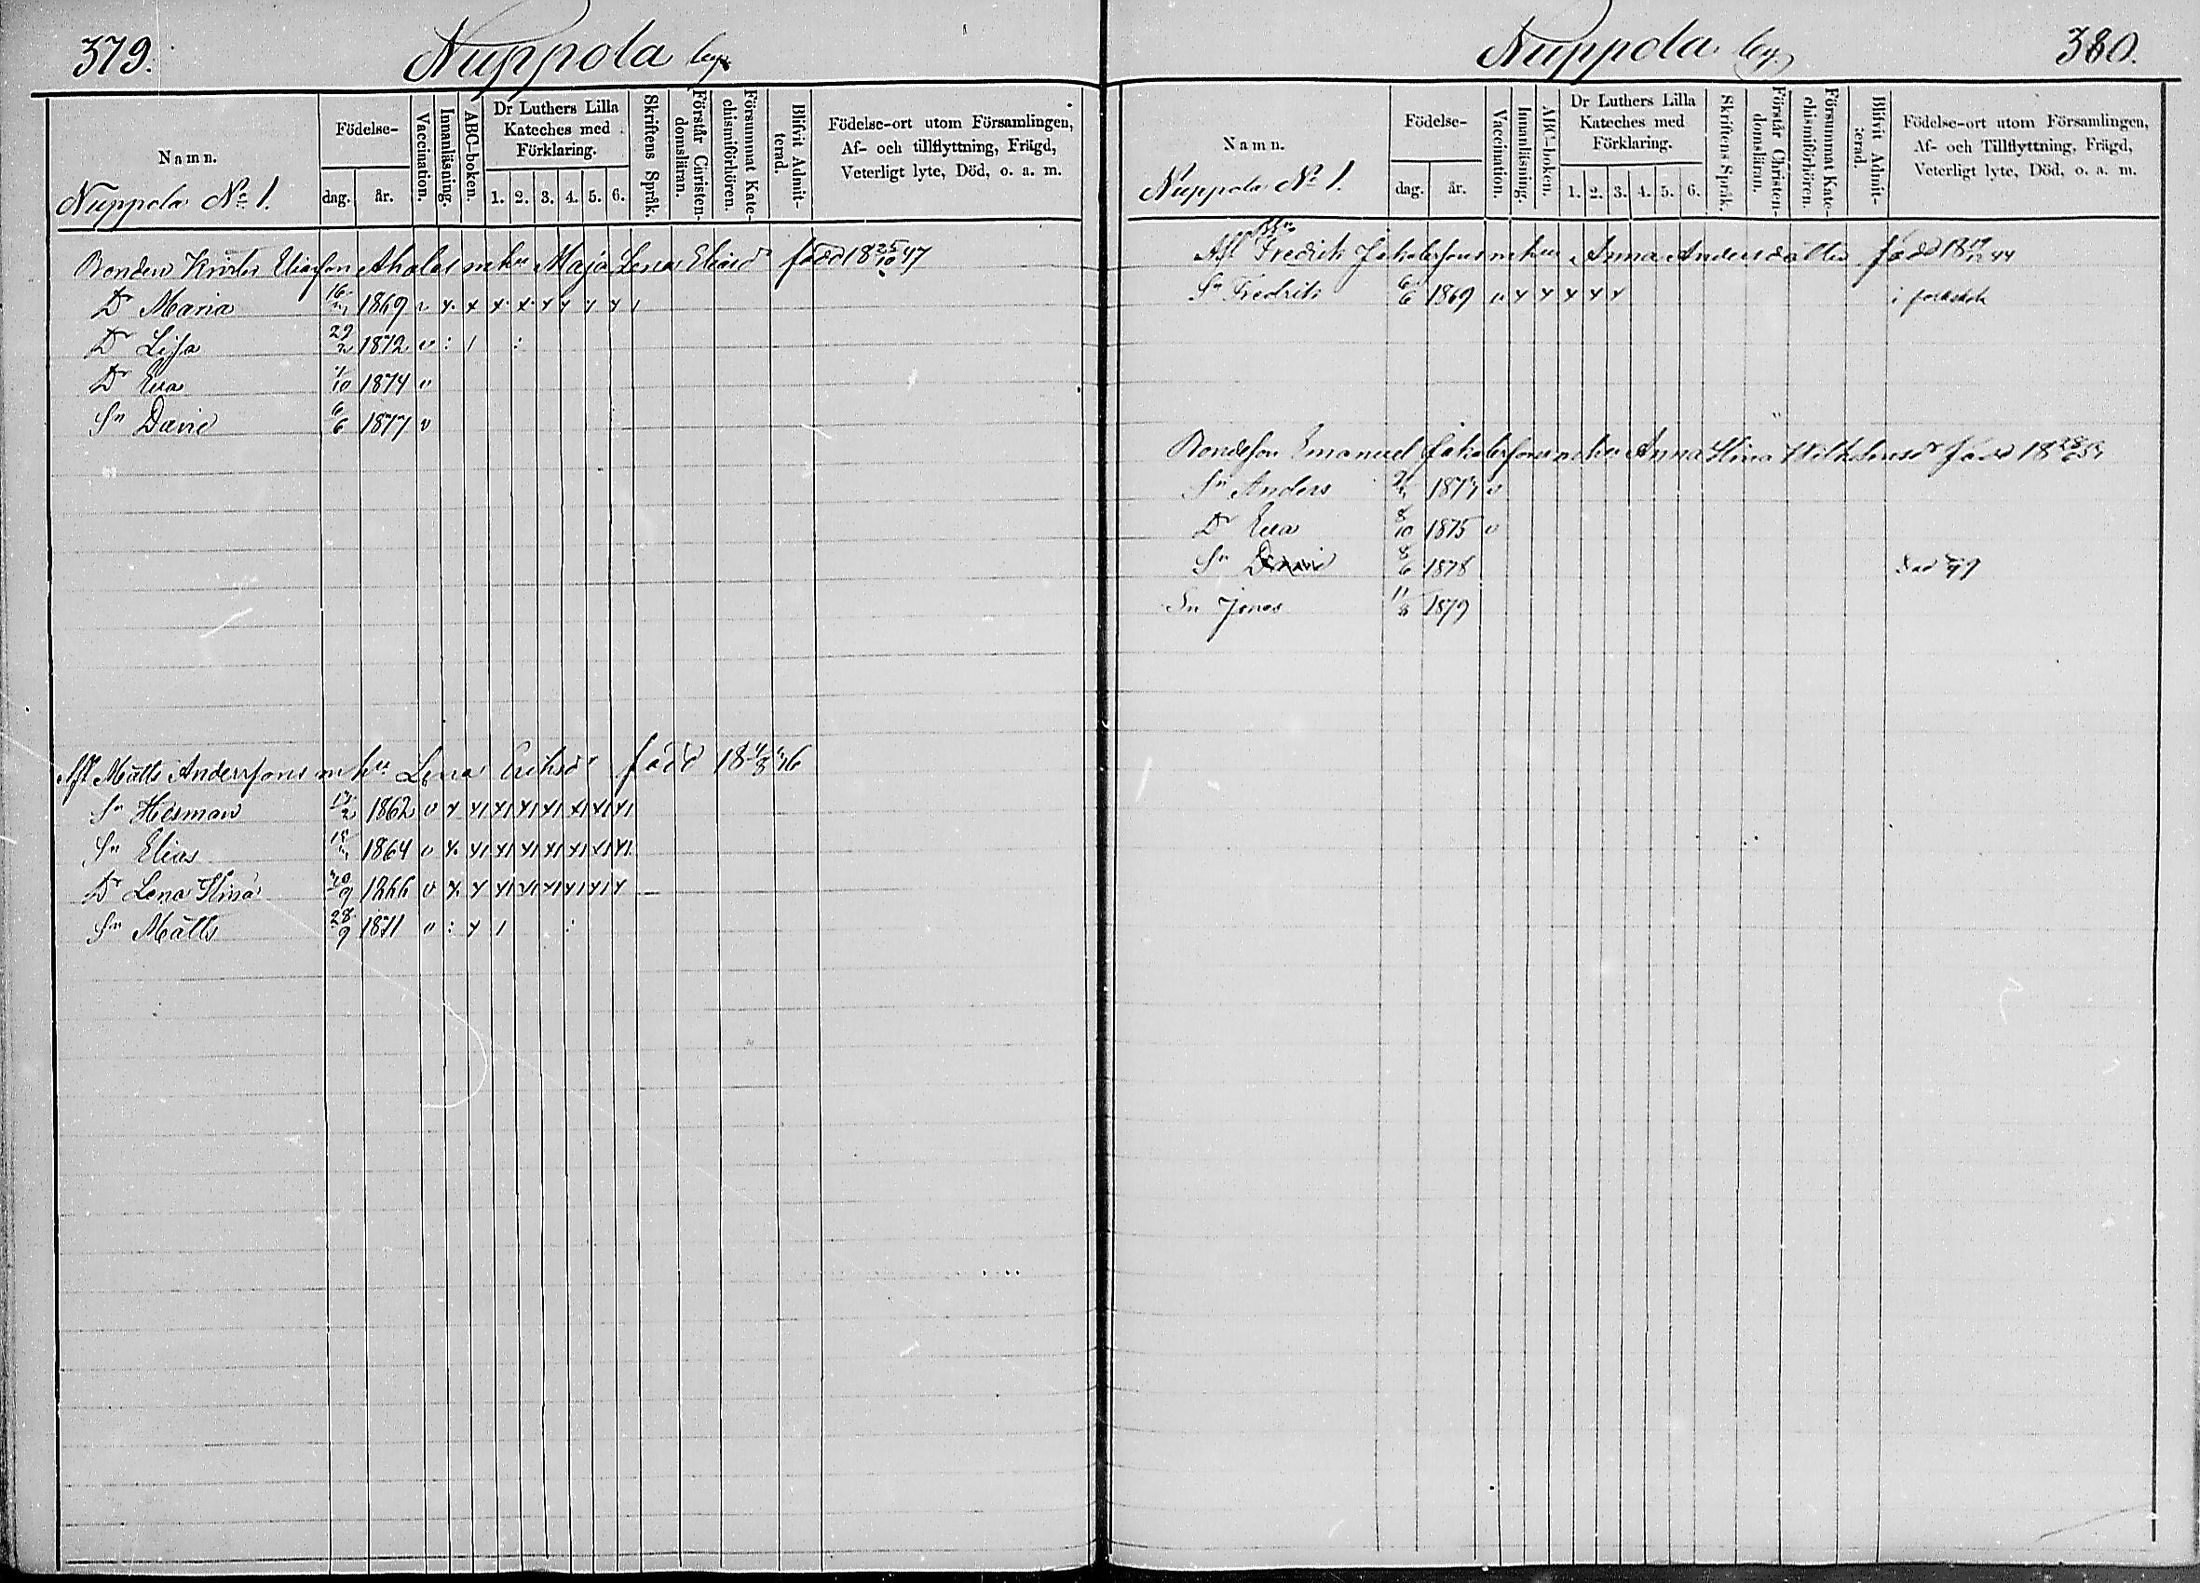 379.
Nuppola by
Namn.
Nuppola No 1.
Födelse-
dag.
år.
Vaccination.
Innanläsning.
ABC-boken.
Dr Luthers Lilla
Kateches med
Förklaring.
1. 2. 3. 4. 5. 6.
Skriftens Språk.
Förstår Christen-
domsläran.
Försummat Kate-
chismiförhören.
Blifvit Admit-
terad.
Födelse-ort utom Församlingen,
Af- och tillflyttning, Frägd,
Veterligt lyte, Död, o. a. m.
Bonden Eliasson Ahola m hu Maja Lena Eliasd född 18 25/10 47
Dr Maria 1869 v x x x x x x x x
Dr Lisa 29/2 1872 v : / :
Dr Eva 1/10 1874 v
Sn David 6/6 1877 v
Afl Matts Anderssons m hu Lena Eriksdr född 18 36
Sn Herman 1862 v x x x x x x x x
Sn Elias 1864 v x x x x x x x x
Dr Lena Stina 20/9 1866 v x x x x x x x x —
Sn Matts 28/9 1871 v : x / :
Nuppola by
380.
Namn.
Nuppola No 1.
Födelse-
dag.
år.
Vaccination.
Innanläsning.
ABC-boken.
Dr Luthers Lilla
Kateches med
Förklaring.
1. 2. 3. 4. 5. 6.
Skriftens Språk.
Förstår Christen-
domsläran.
Försummat Kate-
chismiförhören.
Blifvit Admit-
terad.
Födelse-ort utom Församlingen,
Af- och Tillflyttning, Frägd,
Veterligt lyte, Död, o. a. m.
Afl Fredrik Jakobssons m hu Anna Andersdotter född 18 44
Sn Fredrik 6/6 1869 v x x x x x i
Bondeson Emanuel Jakobssons m hu Anna Stina född 18
Sn Anders v
Dr Eva 8/10 1875 v
Sn David 8/6 1878 död 79
Sn Jonas 11/8 1879